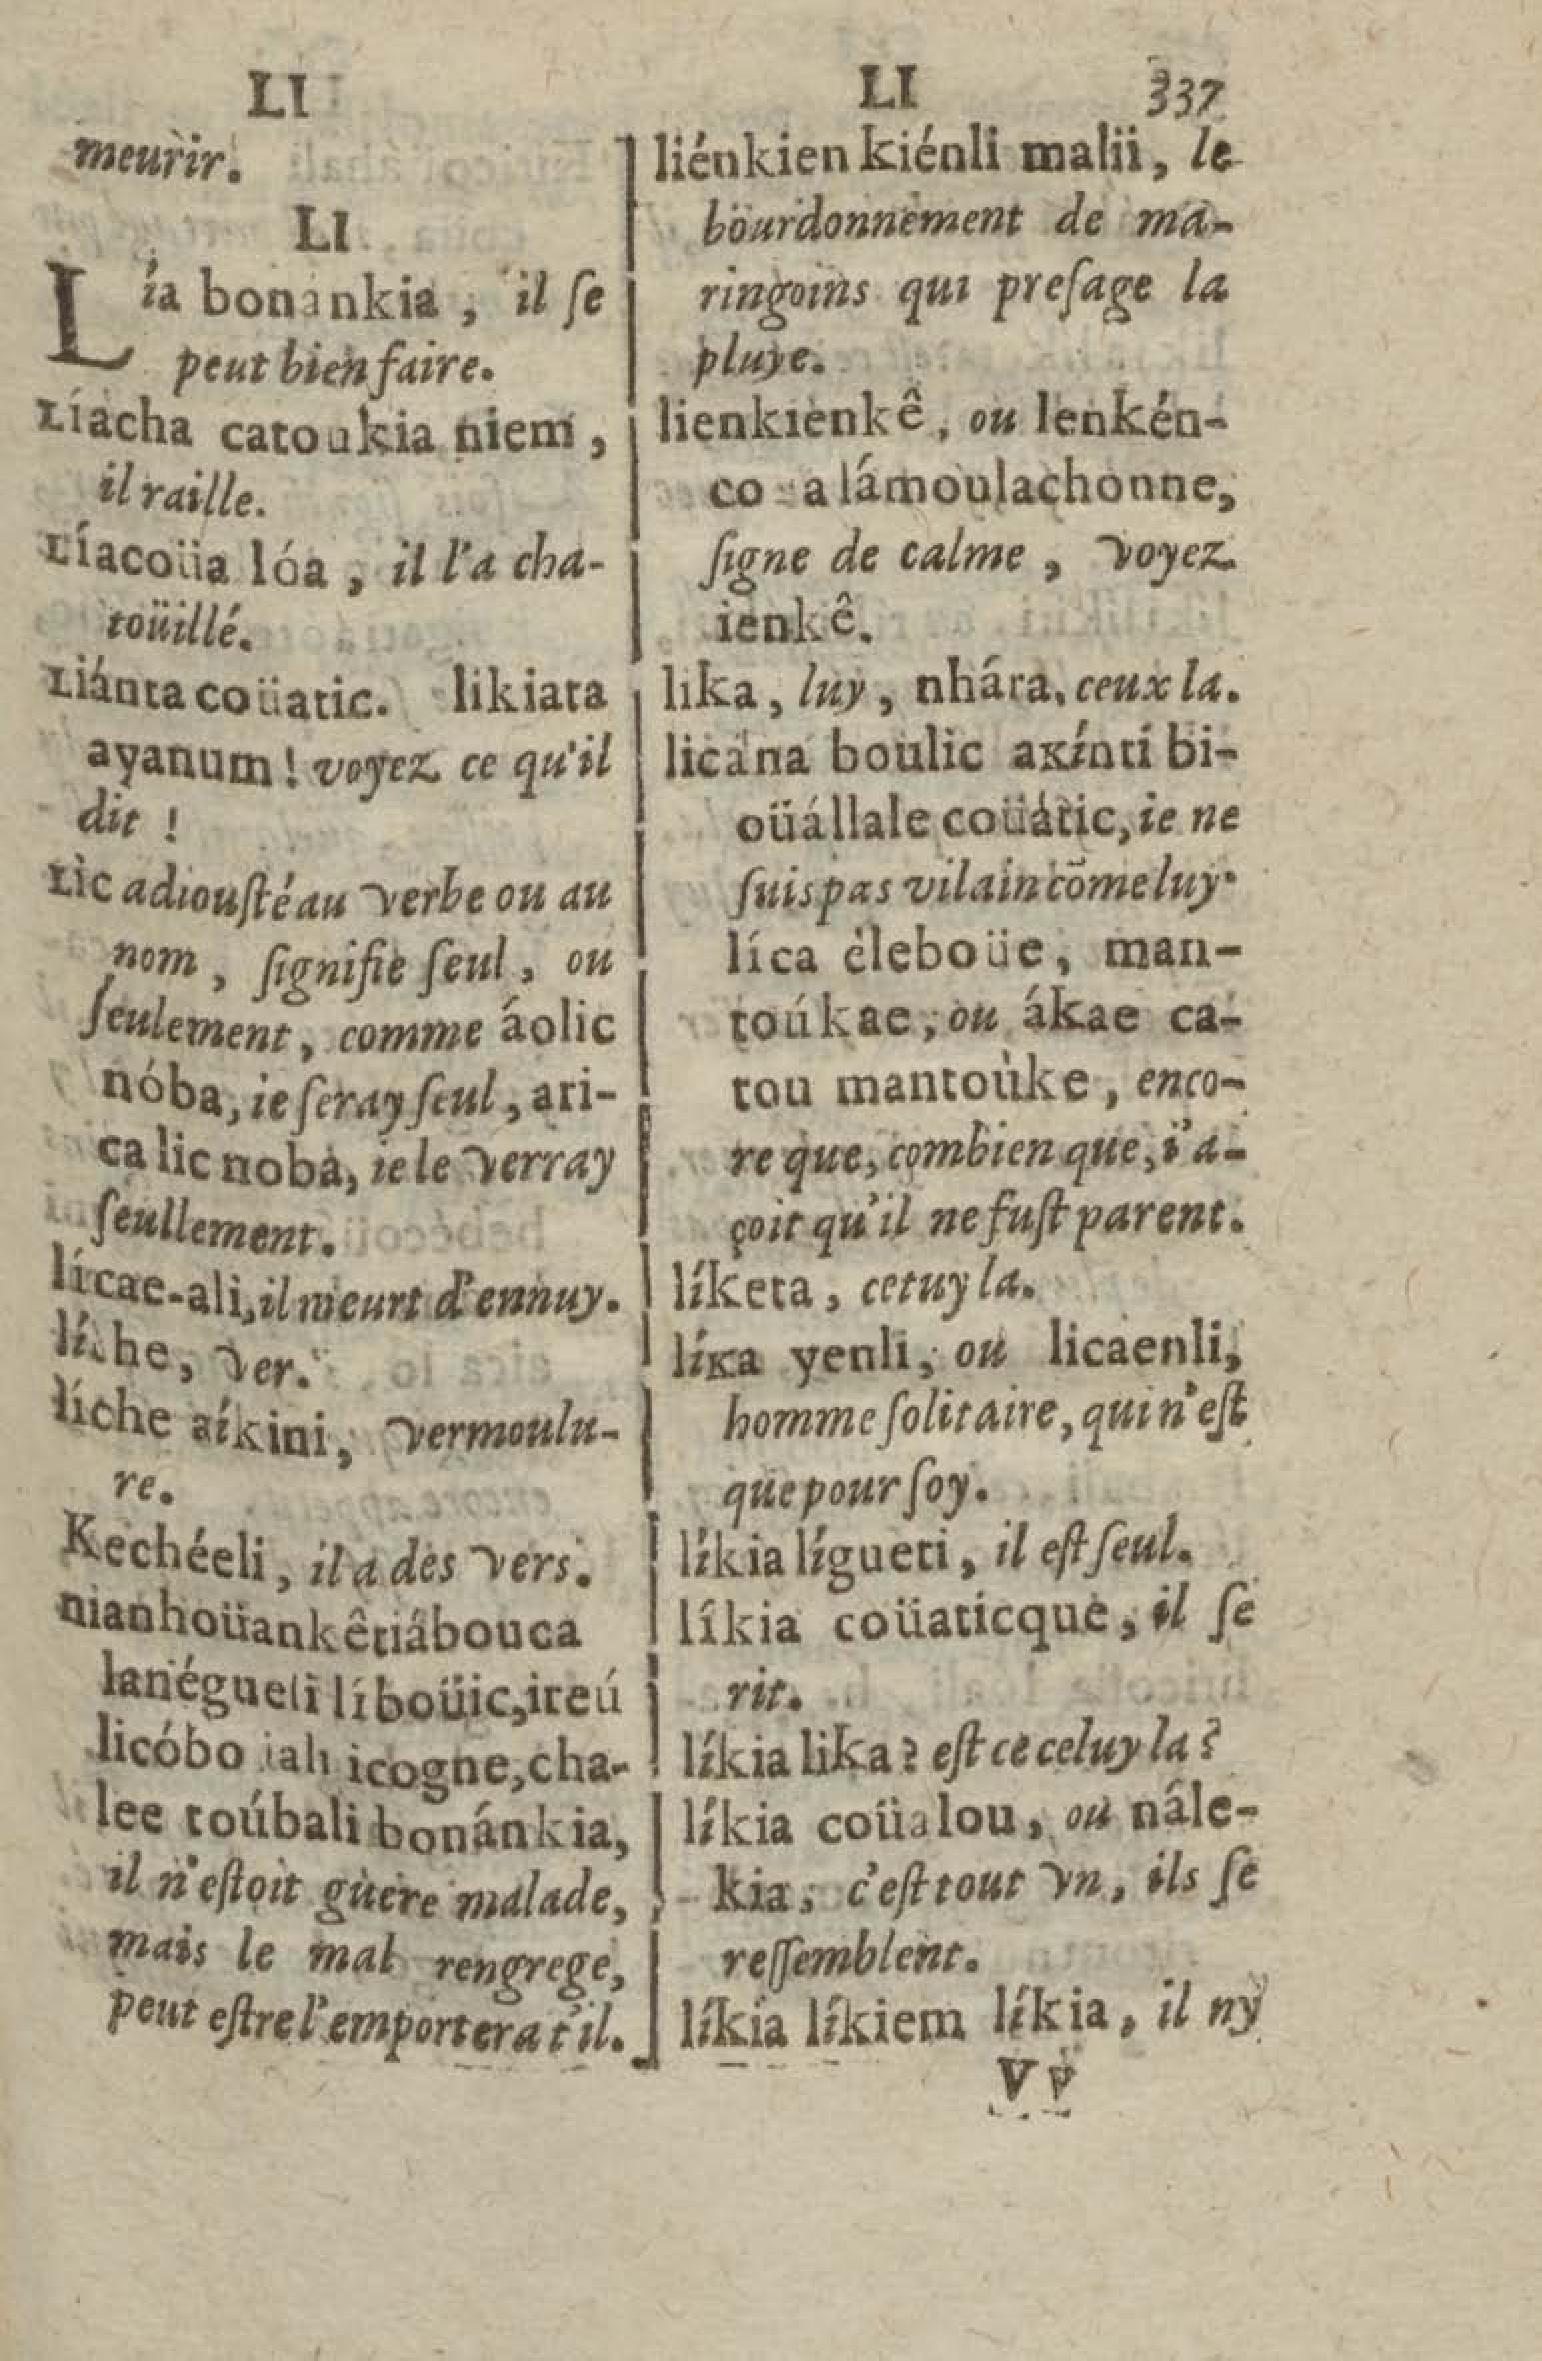 LI
meurir.
LI
Lía bonánkia, il ſe
peut bien faire.
Líacha catoukia niem,
il raille.
Líacoüa lóa, il l'a cha-
toüillé.
Liánta coüatic. likiata
ayanum! voyez ce qu'il
dit!
Lìc adiouſté au verbe ou au
nom, ſignifie ſeul, ou
ſeulement, comme áolic
nóba, ie ſeray ſeul, ari-
ca lic noba, ie le verray
ſeullement.
lícae-ali, il meurt d'ennuy.
líche, ver.
líche aíkini, vermoulu-
re.
Kechéeli, il a des vers.
nianhoüankêtiábouca
lanégueli líboüic, ireú
licóbo ialı icogne, cha-
lee toúbali bonánkia,
il n'eſtoit guere malade,
mais le mal rengrege,
peut eſtre l'emportera t'il.
LI 337
liénkien kiénli malii, le
bourdonnement de ma-
ringoins qui preſage la
pluye.
lienkienkê, ou lenkén-
co a lámoulachonne,
ſigne de calme, voyez
ienkê.
lika, luy, nhára, ceux la.
licána boulic aκíntí bi-
oüállale coüátic, ie ne
ſuis pas vilain cõme luy.
líca éleboüe, man-
toúkae, ou ákae ca-
tou mantoùke, enco-
re que, combien que, i'a-
çoit qu'il ne fuſt parent.
líketa, cetuy la.
líκa yenli, ou licaenli,
homme ſolitaire, qui n'eſt
que pour ſoy.
líkia lígueti, il eſt ſeul.
líkia coüaticque, il ſe
rit.
líkia lika? eſt ce celuy la?
líkia coüalou, ou nále-
kia, c'eſt tout vn, ils ſe
reſſemblent.
líkia líkiem líkia, il ny
V v